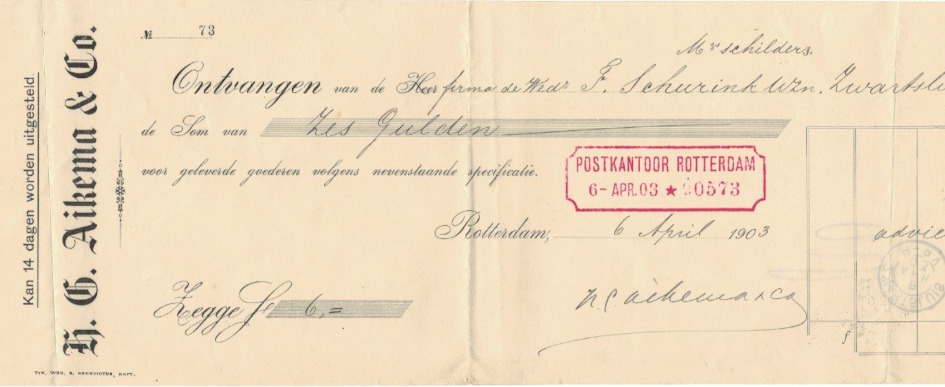 Kan 14 dagen worden uitgesteld.
H. G. Aikema & Co.
№ 73
Mr schilders.
Ontvangen van de Heer firma de Wedr F. Schurink Wzn. Zwartsl
de Som van Zes Gulden
voor geleverde goederen volgens nevenstaande specificatie.
POSTKANTOOR ROTTERDAM
6- APR. 03 ★ 0573
Rotterdam, 6 April 1903
advie
Zegge f 6,=
HGAikema&Co
f
TYP. WED. S. BENEDICTUS, ROTT.